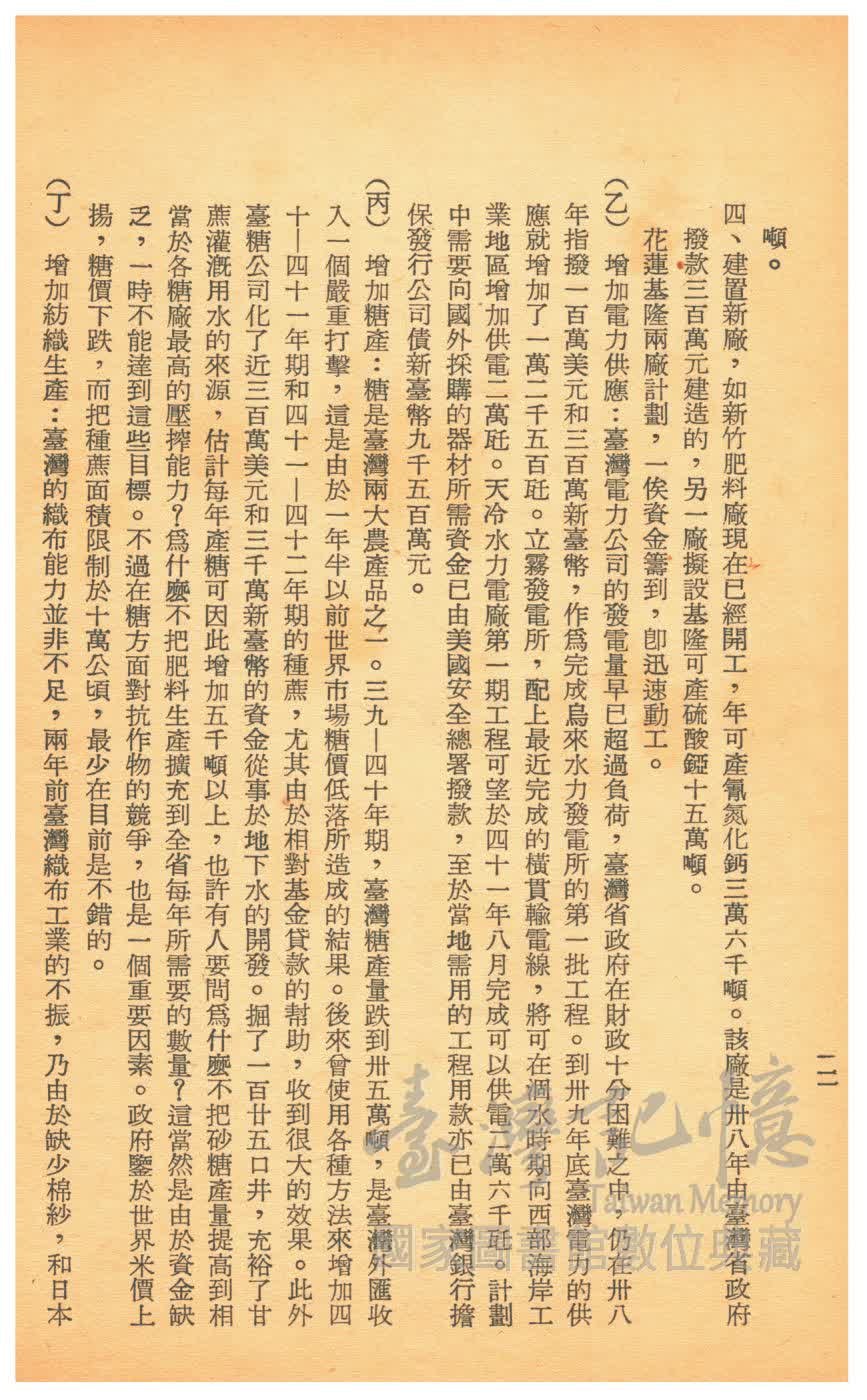 噸。
四、建置新廠，如新竹肥料廠現在已經開工，年可產氰氮化鈣三萬六千噸。該廠是卅八年由臺灣省政府
撥款三百萬元建造的，另一廠擬設基隆可產硫酸錏十五萬噸。
花蓮基隆兩廠計劃，一俟資金籌到，卽迅速動工。
（乙）增加電力供應：臺灣電力公司的發電量早已超過負荷，臺灣省政府在財政十分困難之中，仍在卅八
年指撥一百萬美元和三百萬新臺幣，作爲完成烏來水力發電所的第一批工程。到卅九年底臺灣電力的供
應就增加了一萬二千五百瓩。立霧發電所，配上最近完成的橫貫輸電線，將可在涸水時期向西部海岸工
業地區增加供電二萬瓩。天冷水力電廠第一期工程可望於四十一年八月完成可以供電二萬六千瓩。計劃
中需要向國外採購的器材所需資金已由美國安全總署撥款，至於當地需用的工程用款亦已由臺灣銀行擔
保發行公司債新臺幣九千五百萬元。
（丙）增加糖產：糖是臺灣兩大農產品之一。三九—四十年期，臺灣糖產量跌到卅五萬噸，是臺灣外匯收
入一個嚴重打擊，這是由於一年半以前世界市場糖價低落所造成的結果。後來曾使用各種方法來增加四
十—四十一年期和四十一—四十二年期的種蔗，尤其由於相對基金貸款的幫助，收到很大的效果。此外
臺糖公司化了近三百萬美元和三千萬新臺幣的資金從事於地下水的開發。掘了一百廿五口井，充裕了甘
蔗灌漑用水的來源，估計每年產糖可因此增加五千噸以上，也許有人要問爲什麼不把砂糖產量提高到相
當於各糖廠最高的壓搾能力？爲什麼不把肥料生產擴充到全省每年所需要的數量？這當然是由於資金缺
乏，一時不能達到這些目標。不過在糖方面對抗作物的競爭，也是一個重要因素。政府鑒於世界米價上
揚，糖價下跌，而把種蔗面積限制於十萬公頃，最少在目前是不錯的。
（丁）增加紡織生產：臺灣的織布能力並非不足，兩年前臺灣織布工業的不振，乃由於缺少棉紗，和日本
二一
臺灣記憶
Taiwan Memory
國家圖書館數位典藏